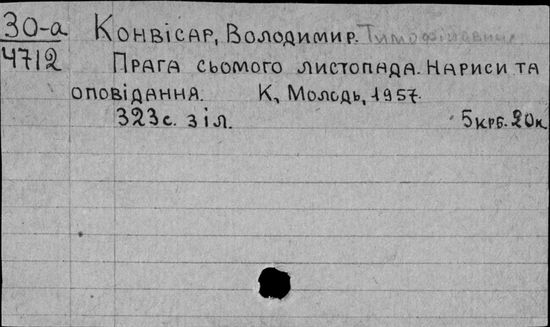 30-а Конвісар, Володимир. Тимофійович
4712 Прага сьомого листопада. Нариси та
оповідання. К, Молодь, 1957.
323с. з іл. 5 крб. 20к